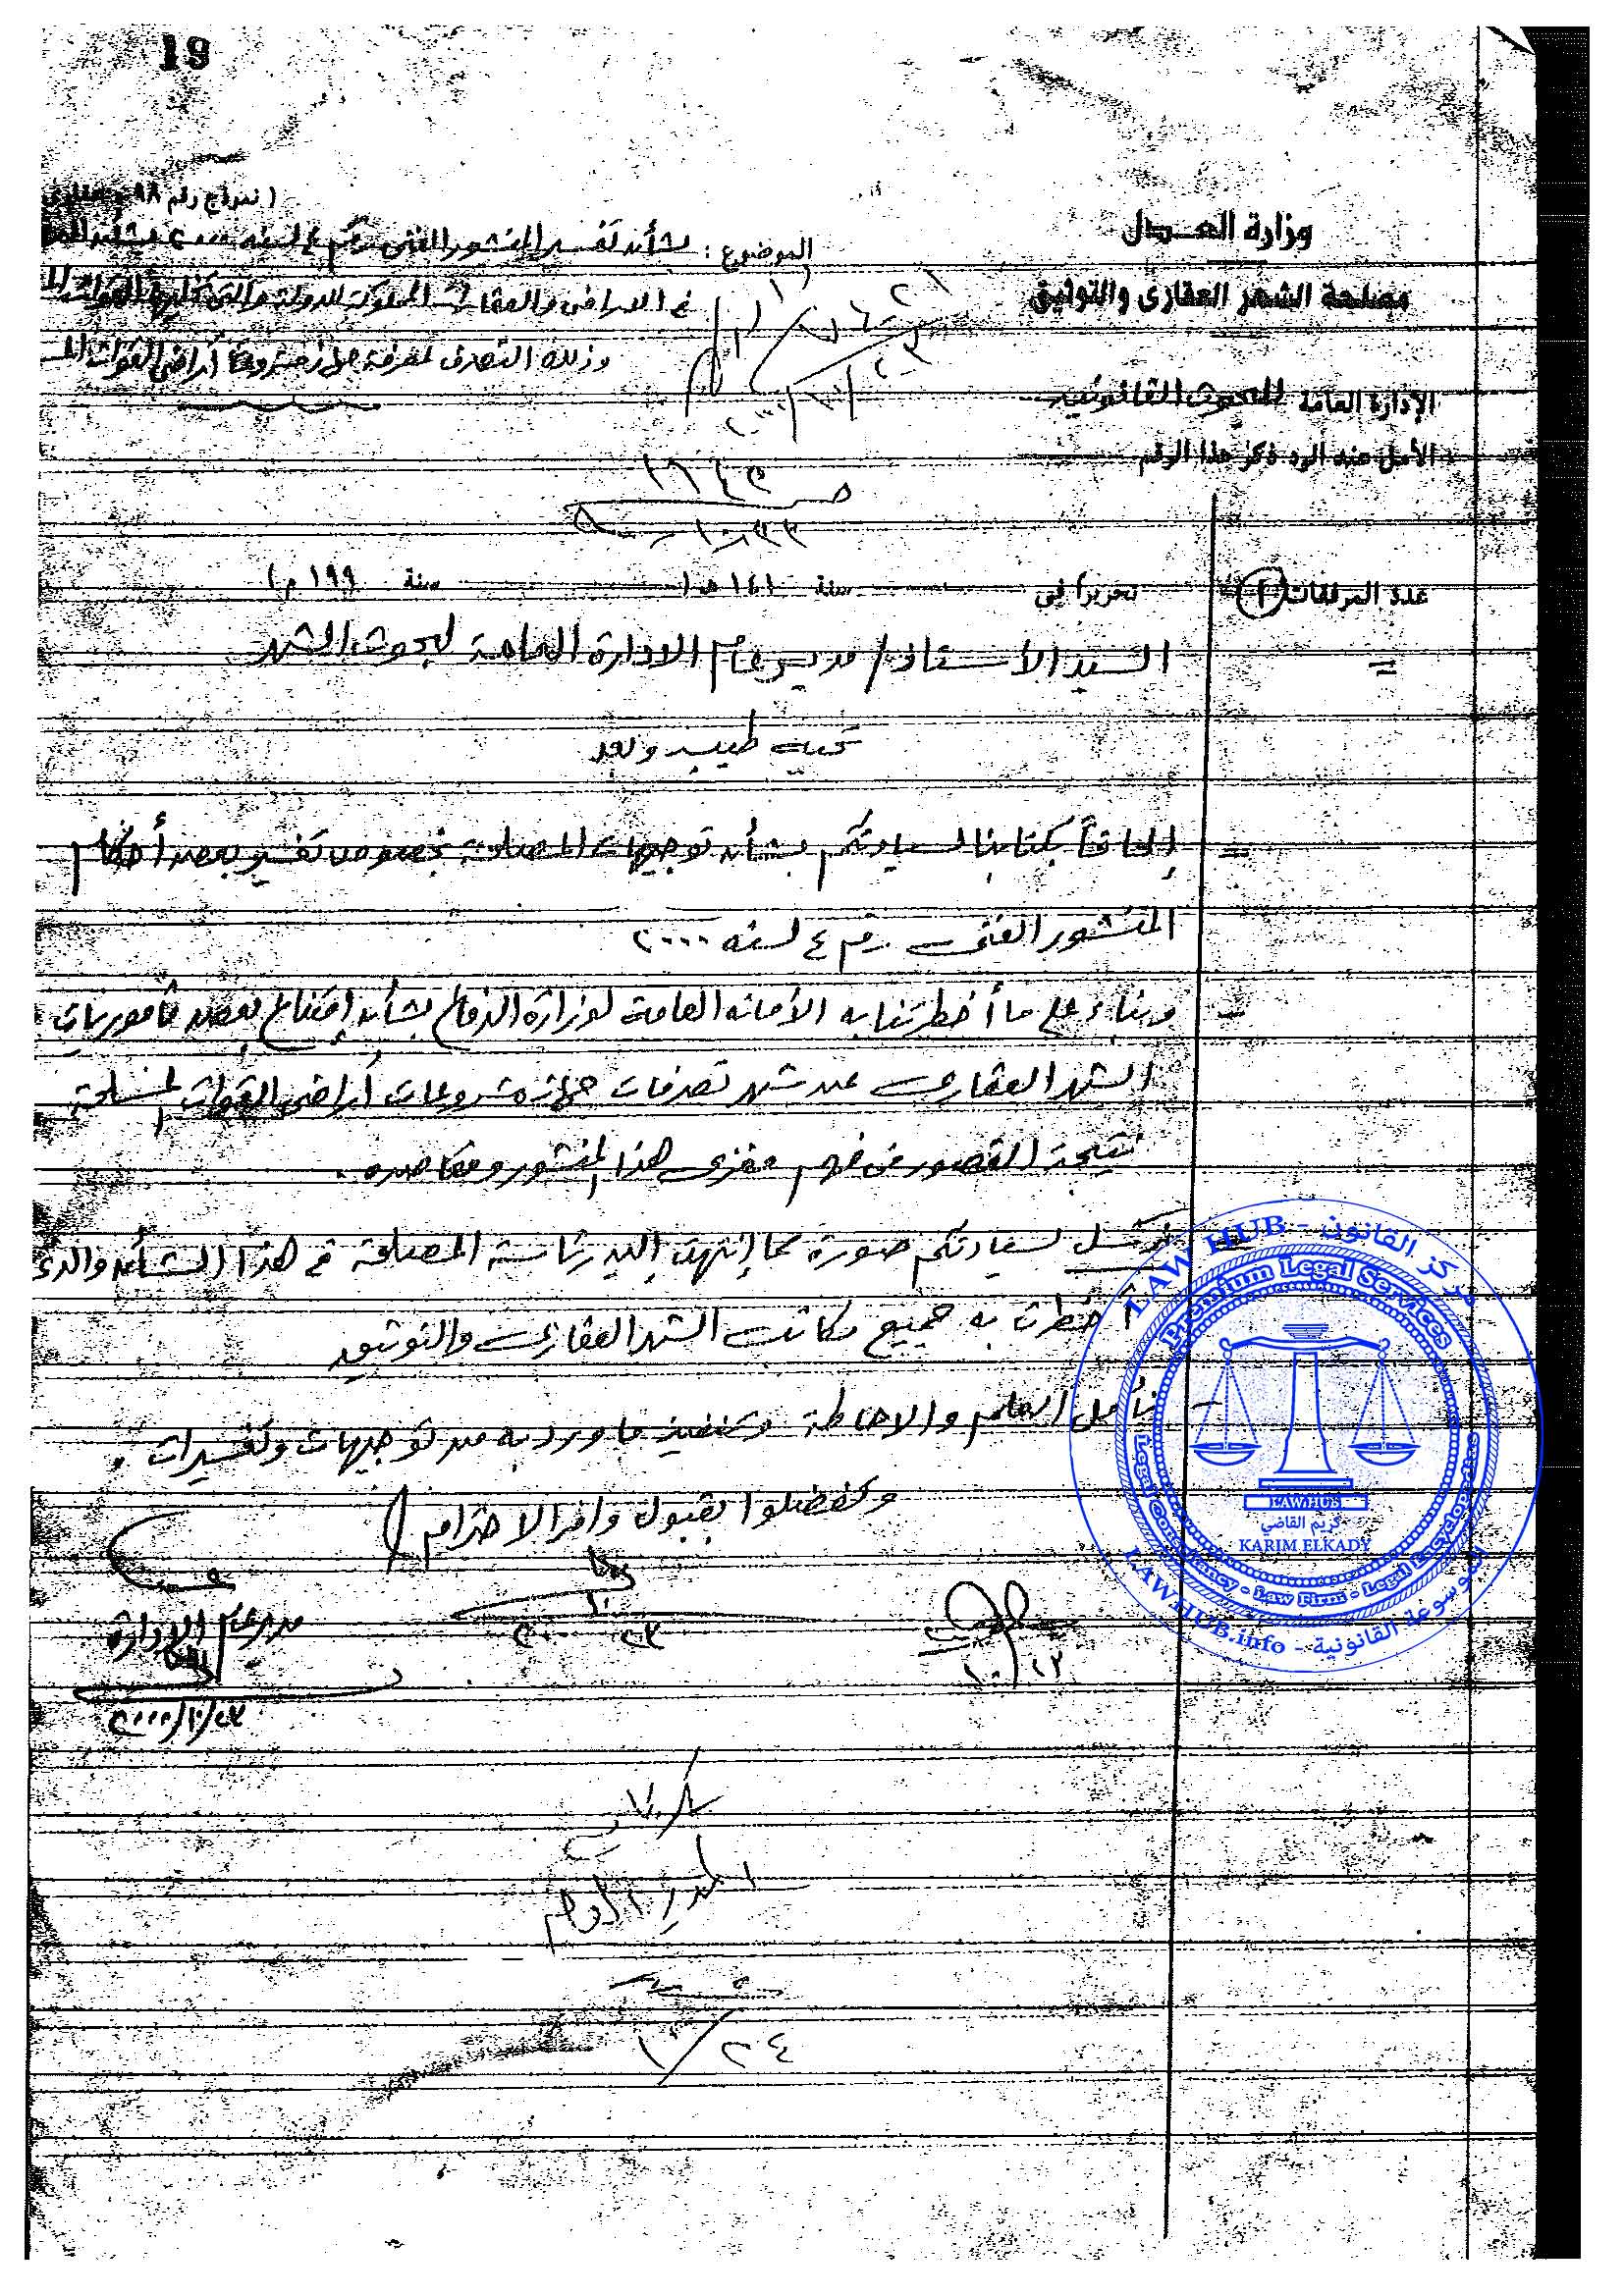 19
( نموذج رقم ٩٨
وزارة العدل
الموضوع : بشأن تفسير المنشور الفنى رقم ٤ لسنه ٢٠٠٠ بشأن
مصلحة الشهر العقارى والتوثيق
فى الاراضى والعقارات المملوكة للدولة والتى
وذلك التصرف بمعرفة جهاز مشروعات أراضى القوات
الإدارة العامة للبحوث القانونية
الأمل عند الرد ذكر هذا الرقم
عدد المرفقات (١)
تحريرا فى سنة ١٤١ هـ ( سنة ١٩٩ م )
السيد الأستاذ / مدير عام الادارة العامة لبحوث الشهر
تحية طيبة وبعد
= إلحاقاً بكتابنا لسيادتكم بشأن توجيهات المصلحة بخصوص تفسير بعض أحكام
المنشور الفنى رقم ٤ لسنه ٢٠٠٠
- وبناء على ما أخطرتنا به الأمانه العامة لوزارة الدفاع بشأن إمتناع بعض مأموريات
الشهر العقارى عن شهر تصرفات جهاز مشروعات أراضى القوات المسلحة
نتيجة القصور فى فهم مغزى هذا المنشور ومقاصده .
نرسل لسيادتكم صورة مما إنتهت إليه رئاسة المصلحة فى هذا الشأن والذى
أخطرت به جميع مكاتب الشهر العقارى والتوثيق
- نأمل العلم والاحاطة وتنفيذ ما ورد به من توجيهات وتفسيرات .
وتفضلوا بقبول وافر الاحترام
مدير عام الإدارة
LAW HUB - مركز القانون
Premium Legal Services
LAWHUB
كريم القاضي
KARIM ELKADY
Legal Consultancy - Law Firm - Legal Encyclopedia
LAWHUB.info - الموسوعة القانونية